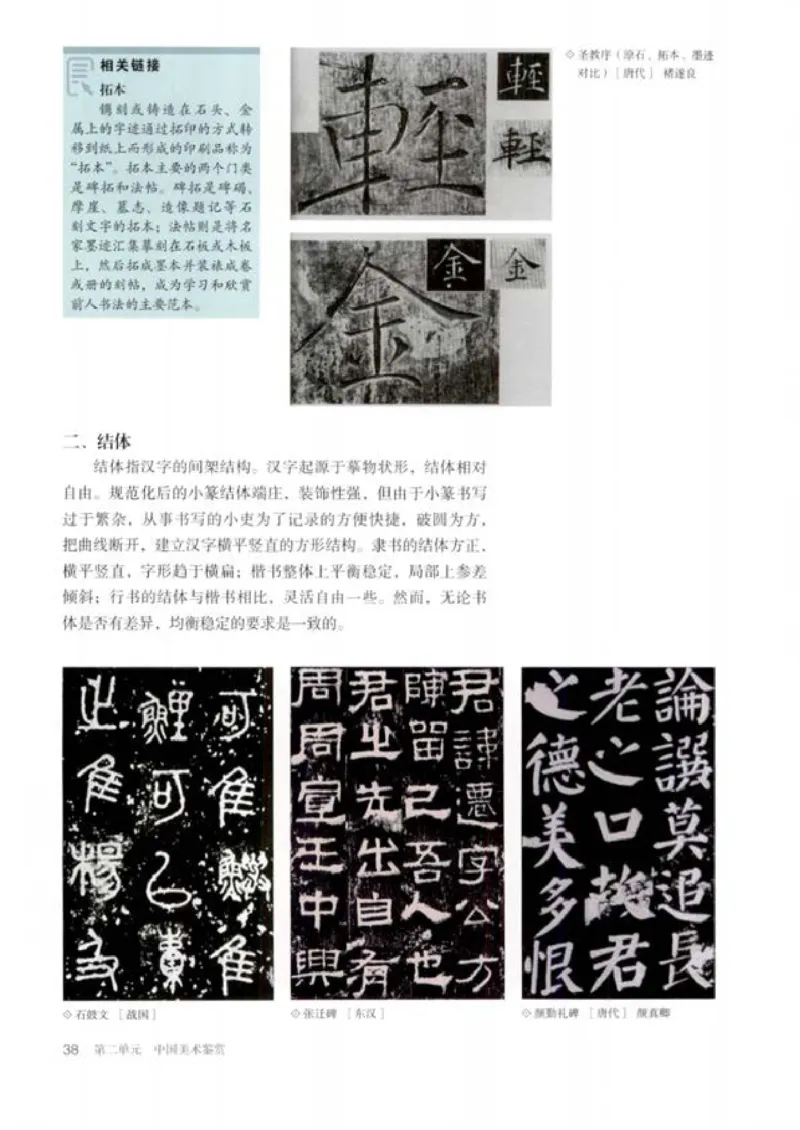 相关链接
拓本
镌刻或铸造在石头、金
属上的字迹通过拓印的方式转
移到纸上而形成的印刷品称为
“拓本”。拓本主要的两个门类
是碑拓和法帖。碑拓是碑碣、
摩崖、墓志、造像题记等石
刻文字的拓本；法帖则是将名
家墨迹汇集摹刻在石板或木板
上，然后拓成墨本并装裱成卷
或册的刻帖，成为学习和欣赏
前人书法的主要范本。
輕
輕
輕
金
金
金
◇圣教序（原石、拓本、墨迹
对比）［唐代］ 褚遂良
二、结体
结体指汉字的间架结构。汉字起源于摹物状形，结体相对
自由。规范化后的小篆结体端庄、装饰性强，但由于小篆书写
过于繁杂，从事书写的小吏为了记录的方便快捷，破圆为方，
把曲线断开，建立汉字横平竖直的方形结构。隶书的结体方正、
横平竖直，字形趋于横扁；楷书整体上平衡稳定，局部上参差
倾斜；行书的结体与楷书相比，灵活自由一些。然而，无论书
体是否有差异，均衡稳定的要求是一致的。
可隹
鯉可
隹楊
君諱遷字公方
陳留己吾人也
君之先出自有
周周宣王中興
論譔莫追長
老之口故君
之德美多恨
◇石鼓文 ［战国］
◇张迁碑 ［东汉］
◇颜勤礼碑 ［唐代］ 颜真卿
38 第二单元 中国美术鉴赏